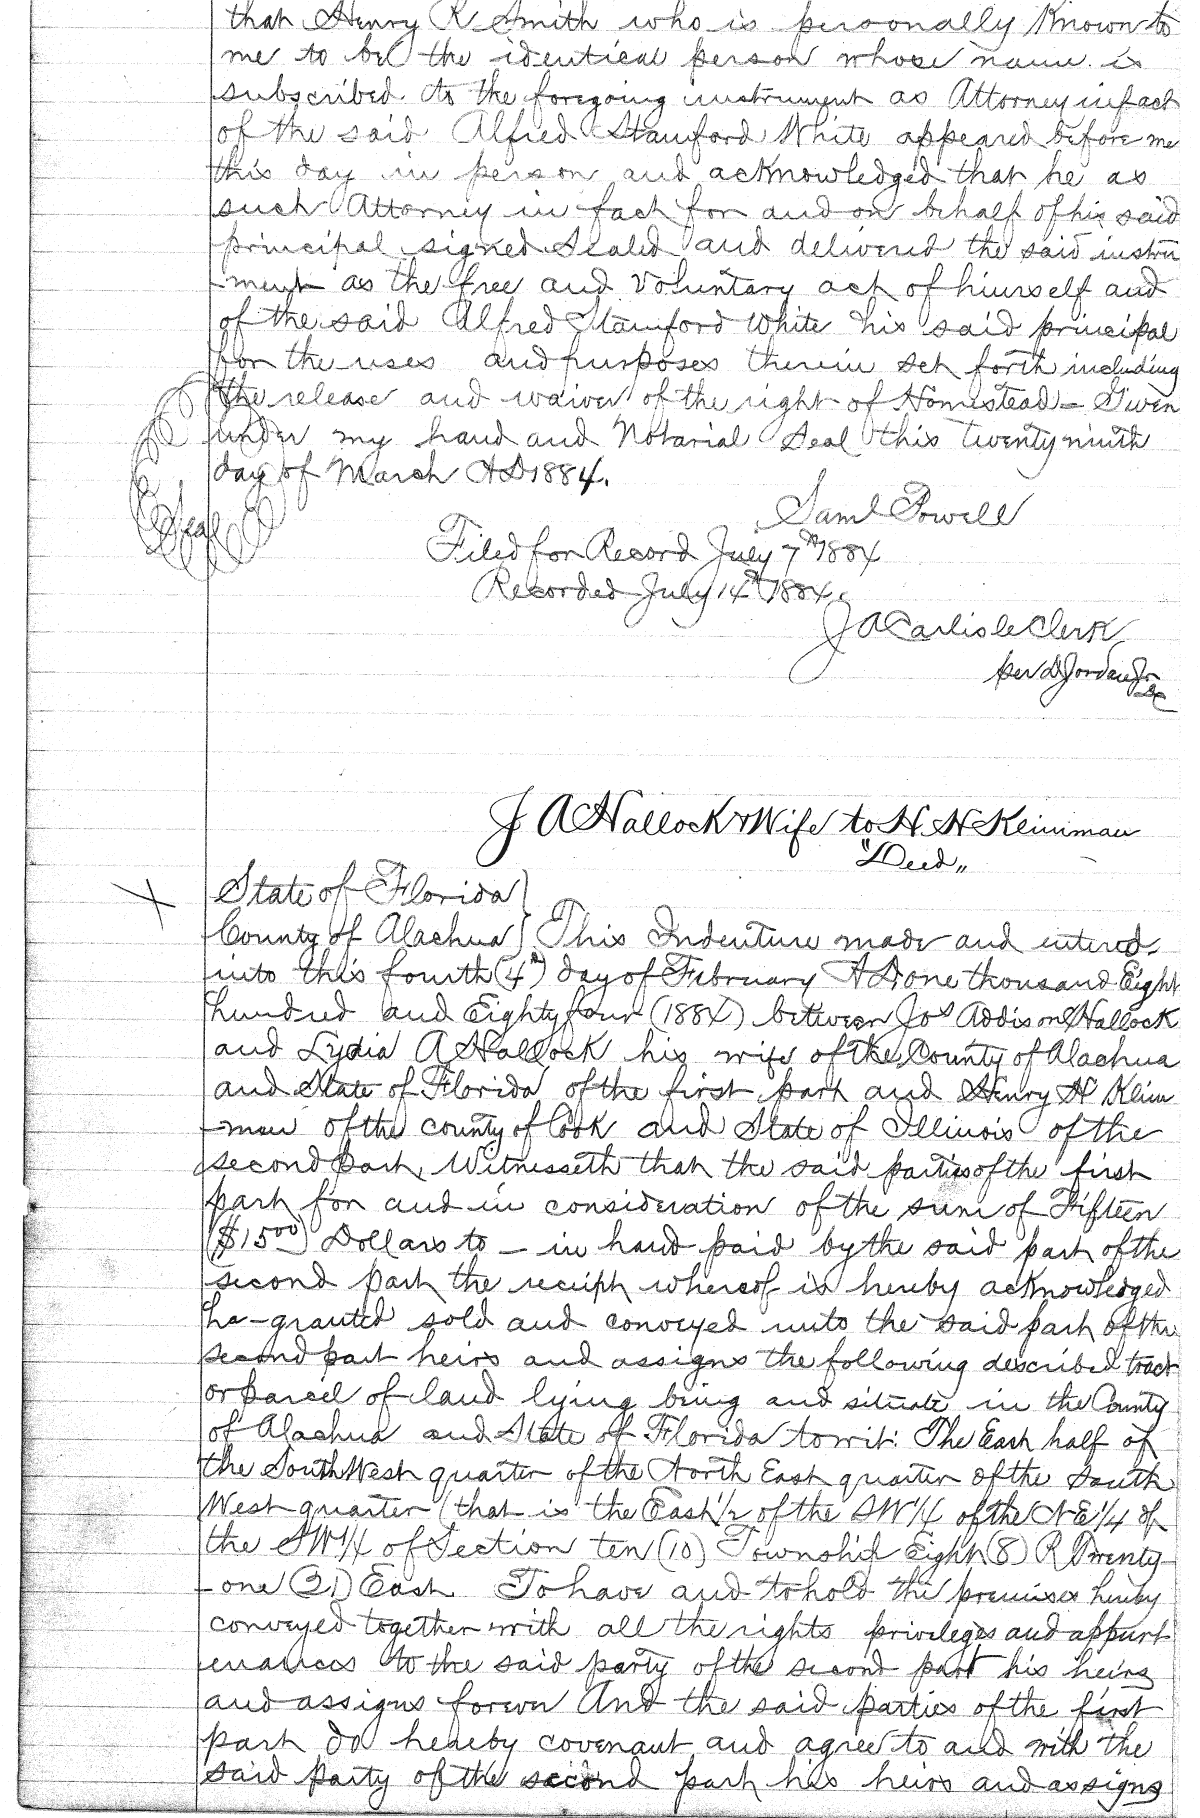 that Henry R Smith who is personally Known to
me to be the identical person whose name is
subscribed to the foregoing instrument as Attorney in fact
of the said Alfred Stamford White appeared before me
this day in person and acknowledged that he as
such Attorney in fact for and on behalf of his said
principal signed Sealed and delivered the said instru
-ment as the free and Voluntary act of himself and
of the said Alfred Stamford White his said principal
for the uses and purposes therein set forth including
the release and waiver of the right of Homestead - Given
under my hand and Notarial Seal this twenty ninth
day of March AD 1884.
Seal
Saml Powell
Filed for Record July 7th 1884
Recorded July 14th 1884.
J A Carlisle Clerk
per D Jordan Jr
DC
J A Hallock & Wife to H. H Kleinman
"Deed"
State of Florida }
County of Alachua } This Indenture made and entered
into this fourth (4th) day of February AD one thousand Eight
hundred and Eighty four (1884) between Jos Addison Hallock
and Lydia A Hallock his wife of the County of Alachua
and State of Florida of the first part and Henry H Klein
-man of the county of Cook and State of Illinois of the
second part, Witnesseth that the said parties of the first
part for and in consideration of the sum of Fifteen
($15 00) Dollars to - in hand paid by the said part of the
second part the receipt whereof is hereby acknowledged
ha- granted sold and conveyed unto the said part of the
second part heirs and assigns the following described tract
or parcel of land lying being and situate in the County
of Alachua and State of Florida to wit: The East half of
the South West quarter of the North East quarter of the South
West quarter (that is the East 1/2 of the SW 1/4 of the NE 1/4 of
the SW 1/4 of Section ten (10) Township Eight (8) R Twenty
-one (21) East To have and to hold the premises hereby
conveyed together with all the rights privileges and appurt
enances to the said party of the second part his heirs
and assigns forever And the said parties of the first
part do hereby covenant and agree to and with the
said party of the second part his heirs and assigns